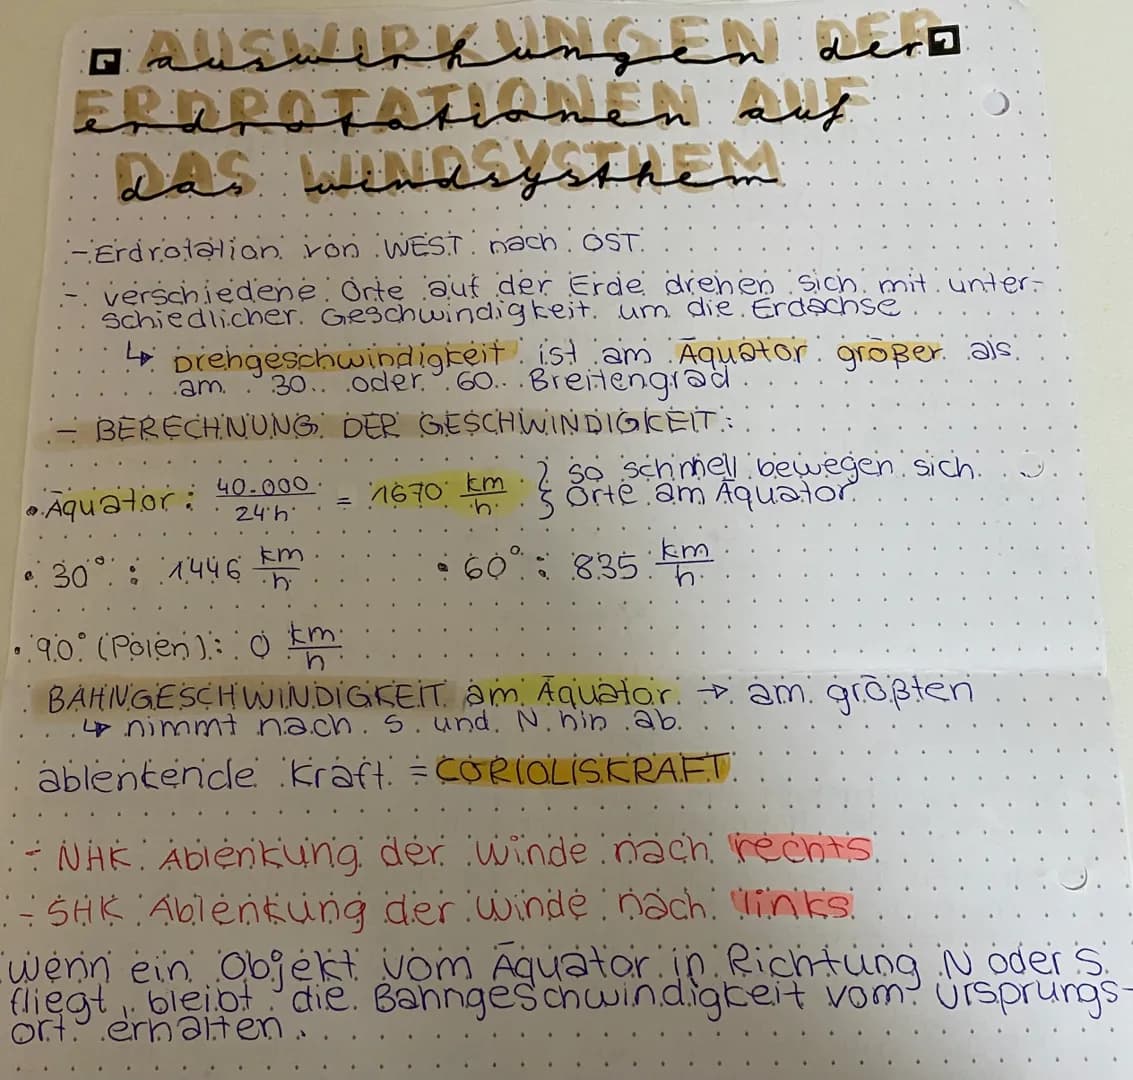 AUSWIRKUNGEN DER
auswirkungen der
ERDROTATIONEN AUF
erdrotationen auf
DAS WINDSYSTHEM
das windsysthem
- Erdrotation von WEST nach OST.
- verschiedene Orte auf der Erde drehen sich mit unter-
schiedlicher Geschwindigkeit um die Erdachse.
↳ Drehgeschwindigkeit ist am Äquator größer als
am 30. oder 60. Breitengrad.
- BERECHNUNG DER GESCHWINDIGKEIT:
• Äquator: 40.000/24h = 1670 km/h } so schnell bewegen sich
Orte am Äquator.
• 30°: 1446 km/h • 60°: 835 km/h
• 90° (Polen): 0 km/h
BAHNGESCHWINDIGKEIT am Äquator → am größten
↳ nimmt nach S und N hin ab.
ablenkende Kraft = CORIOLISKRAFT
- NHK: Ablenkung der Winde nach rechts
- SHK: Ablenkung der Winde nach links
wenn ein Objekt vom Äquator in Richtung N oder S
fliegt, bleibt die Bahngeschwindigkeit vom Ursprungs-
ort erhalten.